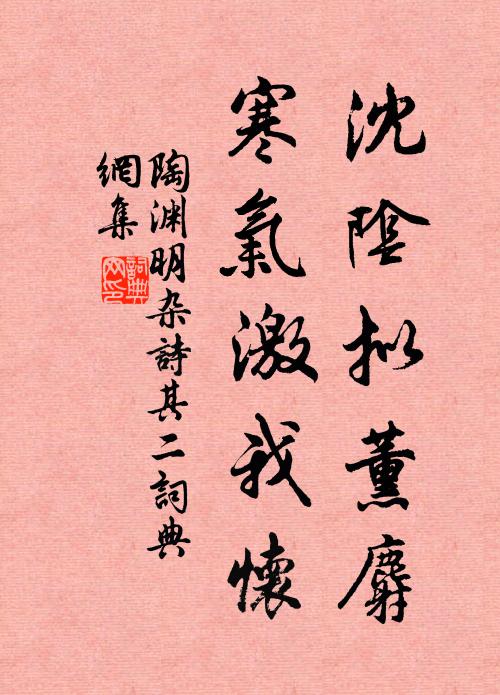 沈陰拟薰麝
寒氣激我懷
陶渊明杂詩其二詞典
網集
詞典
网印